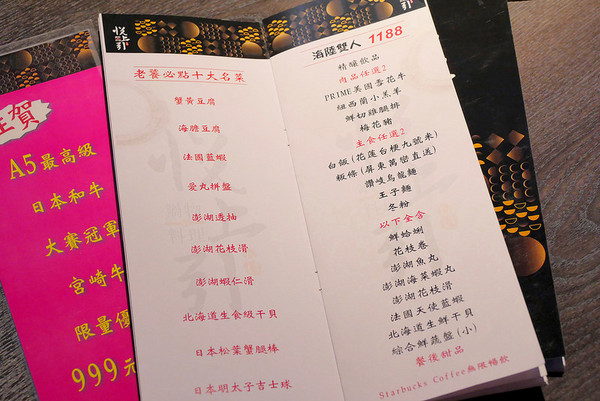 狂賀
A5最高級
日本和牛
大賽冠軍
宮崎牛
限量優
999元
老饕必點十大名菜
蟹黃豆腐
海膽豆腐
法國藍蝦
愛丸拼盤
澎湖透抽
澎湖花枝滑
澎湖蝦仁滑
北海道生食級干貝
日本松葉蟹腿棒
日本明太子吉士球
海陸雙人 1188
精釀飲品
肉品任選2
PRIME美國雪花牛
紐西蘭小羔羊
鮮切雞腿排
梅花豬
主食任選2
白飯(花蓮台梗九號米)
粄條(屏東萬巒直送)
讚岐烏龍麵
王子麵
冬粉
以下全含
鮮蛤蜊
花枝卷
澎湖魚丸
澎湖海菜蝦丸
澎湖花枝滑
法國天使藍蝦
北海道生鮮干貝
綜合鮮蔬盤(小)
餐後甜品
Starbucks Coffee無限暢飲